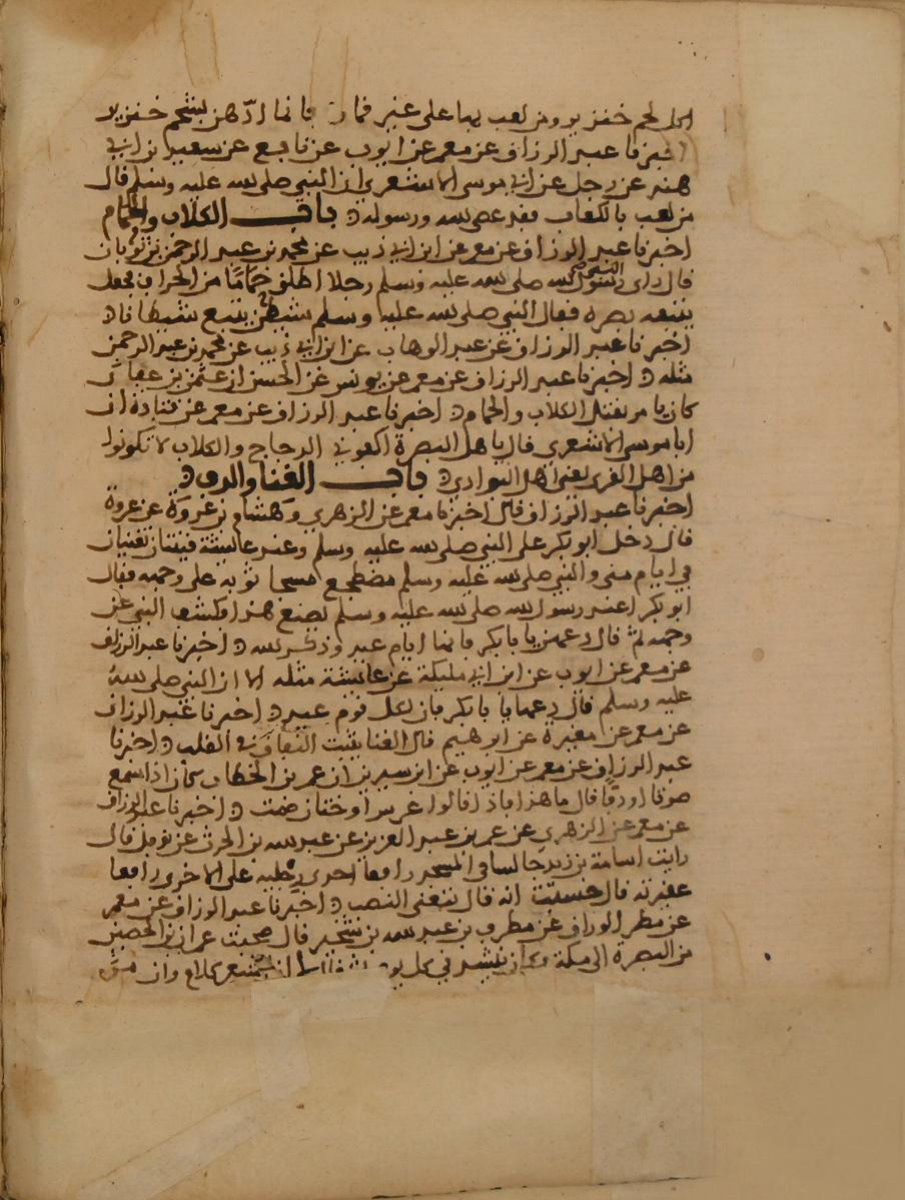 اكل لحم خنزير ومن لعب بها على غير قمار فانما ادهن بشحم خنزير
اخبرنا عبد الرزاق عن معمر عن ايوب عن نافع عن سعيد بن ابي
هند عن رجل عن ابي موسى الاشعري ان النبي صلى الله عليه وسلم قال
من لعب بالكعاب فقد عصى الله ورسوله ه باب الكلاب والحمام
اخبرنا عبد الرزاق عن معمر عن ابن ابي ذيب عن محمد بن عبد الرحمن بن ثوبان
قال راى رسول الله صلى الله عليه وسلم رجلا اطلق حماما من الجراب فجعل
يتبعه بصره فقال النبي صلى الله عليه وسلم شيطان يتبع شيطانا ه
اخبرنا عبد الرزاق عن عبد الوهاب عن ابن ابي ذيب عن محمد بن عبد الرحمن
مثله ه اخبرنا عبد الرزاق عن معمر عن يونس عن الحسن ان عثمن بن عفان
كان يامر بقتل الكلاب والحمام ه اخبرنا عبد الرزاق عن معمر عن قتادة ان
ابا موسى الاشعري قال يا هل البصرة اكفوني الدجاج والكلاب لا تكونوا
من اهل القرى يعني اهل البوادي ه باب الغنا والدف ه
اخبرنا عبد الرزاق قال اخبرنا معمر عن الزهري وهشام بن عروة عن عروة
قال دخل ابو بكر على النبي صلى الله عليه وسلم وعند عايشة قينتان تغنيان
في ايام منى والنبي صلى الله عليه وسلم مضطجع مسجا ثوبه على وجهه فقال
ابو بكر اعند رسول الله صلى الله عليه وسلم يصنع هذا فكشف النبي عن
وجهه ثم قال دعهن يا با بكر فانما ايام عيد وذكر الله ه اخبرنا عبد الرزاق
عن معمر عن ايوب عن ابن ابي مليكة عن عايشة مثله الا ان النبي صلى الله
عليه وسلم قال دعهما يا با بكر فان لكل قوم عيد ه اخبرنا عبد الرزاق
عن معمر عن مغيرة عن ابرهيم قال الغنا ينبت النفاق في القلب ه اخبرنا
عبد الرزاق عن معمر عن ايوب عن ابن سيرين ان عمر بن الخطاب كان اذا سمع
صوتا او دفا قال ما هذا فاذا قالوا عرس او ختان صمت ه اخبرنا عبد الرزاق
عن معمر عن الزهري عن عمر بن عبد العزيز عن عبد الله بن الحرث عن نوفل قال
رايت اسامة بن زيد جالسا في المسجد رافعا احدى رجليه على الاخرى رافعا
عقيرته قال حسبت انه قال يتغنى النصب ه اخبرنا عبد الرزاق عن معمر
عن مطر الوراق عن مطرف بن عبد الله بن شخير قال صحبت عمران بن الحصين
من البصرة الى مكة وكان ينشد في كل يوم ان الشعر كلام وان من